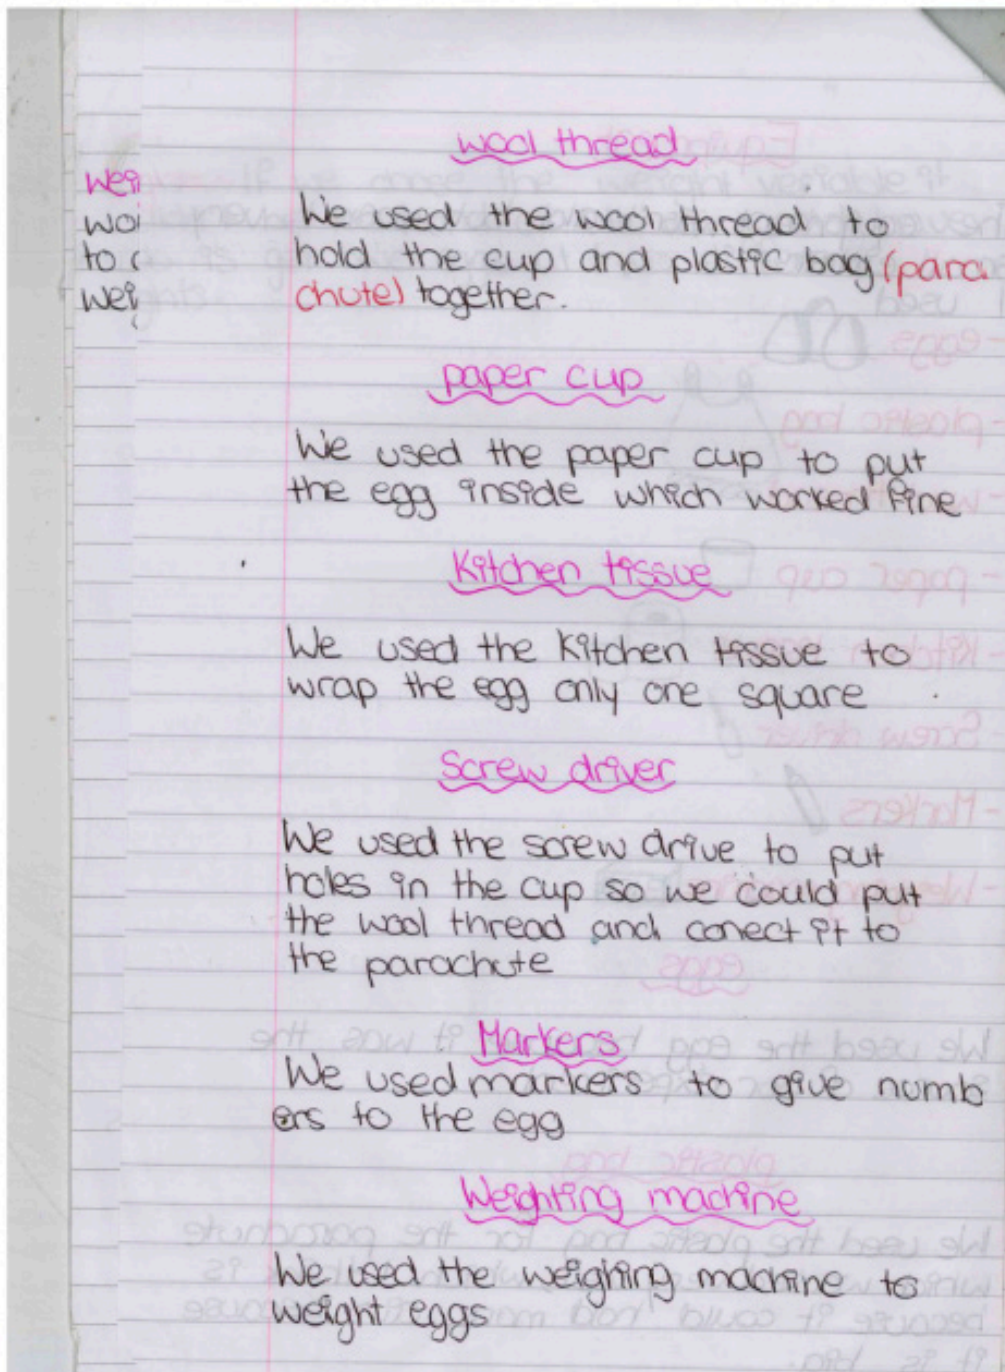 wool thread
We used the wool thread to
hold the cup and plastic bag (para
chute) together.
paper cup
We used the paper cup to put
the egg inside which worked fine
Kitchen tissue
We used the kitchen tissue to
wrap the egg only one square
Screw driver
We used the screw drive to put
holes in the cup so we could put
the wool thread and conect it to
the parachute
Markers
We used markers to give numb
ers to the egg
Weighting machine
We used the weighing machine to
weight eggs